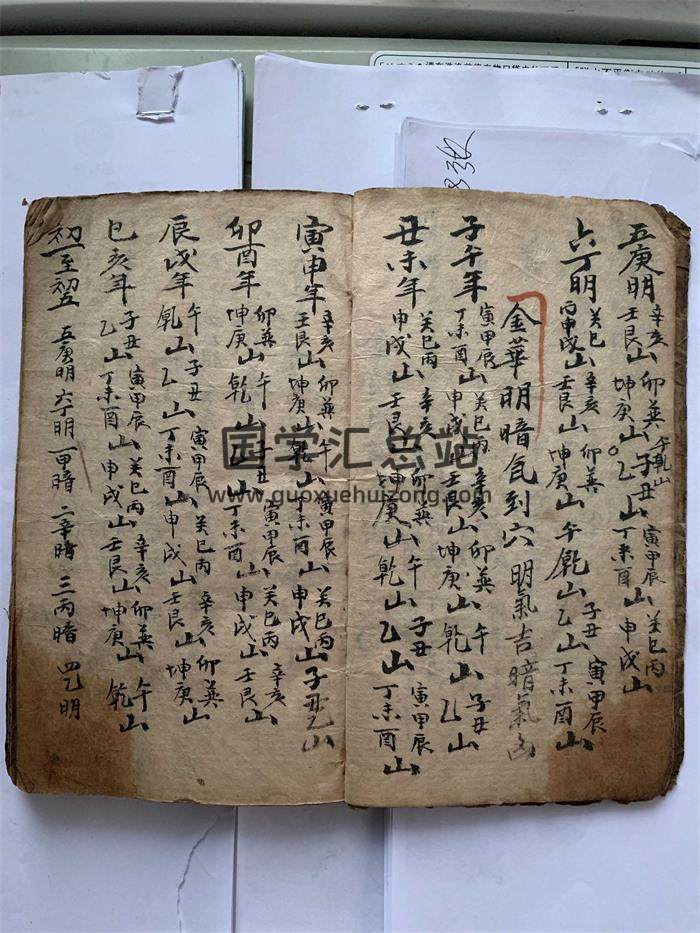 五庚明 辛亥壬艮山 卯巽坤庚山 午乾山 子丑乙山 寅甲辰丁未酉山 癸巳丙申戌山
六丁明 癸巳丙申戌山 辛亥壬艮山 卯巽坤庚山 午乾山 子丑乙山 寅甲辰丁未酉山
金華明暗氣到穴 明氣吉暗氣凶
子午年 寅甲辰丁未酉山 癸巳丙申戌山 辛亥壬艮山 卯巽坤庚山 午乾山 子丑乙山
丑未年 癸巳丙申戌山 辛亥壬艮山 卯巽坤庚山 午乾山 子丑乙山 寅甲辰丁未酉山
寅申年 辛亥壬艮山 卯巽坤庚山 午乾山 寅甲辰丁未酉山 癸巳丙申戌山 子丑乙山
卯酉年 卯巽坤庚山 午乾山 子丑乙山 寅甲辰丁未酉山 癸巳丙申戌山 辛亥壬艮山
辰戌年 午乾山 子丑乙山 寅甲辰丁未酉山 癸巳丙申戌山 辛亥壬艮山 卯巽坤庚山
巳亥年 子丑乙山 寅甲辰丁未酉山 癸巳丙申戌山 辛亥壬艮山 卯巽坤庚山 午乾山
初一至初 五庚明 六丁明 一甲暗 二辛暗 三丙暗 四乙明
国学汇总站
www.guoxuehuizong.com